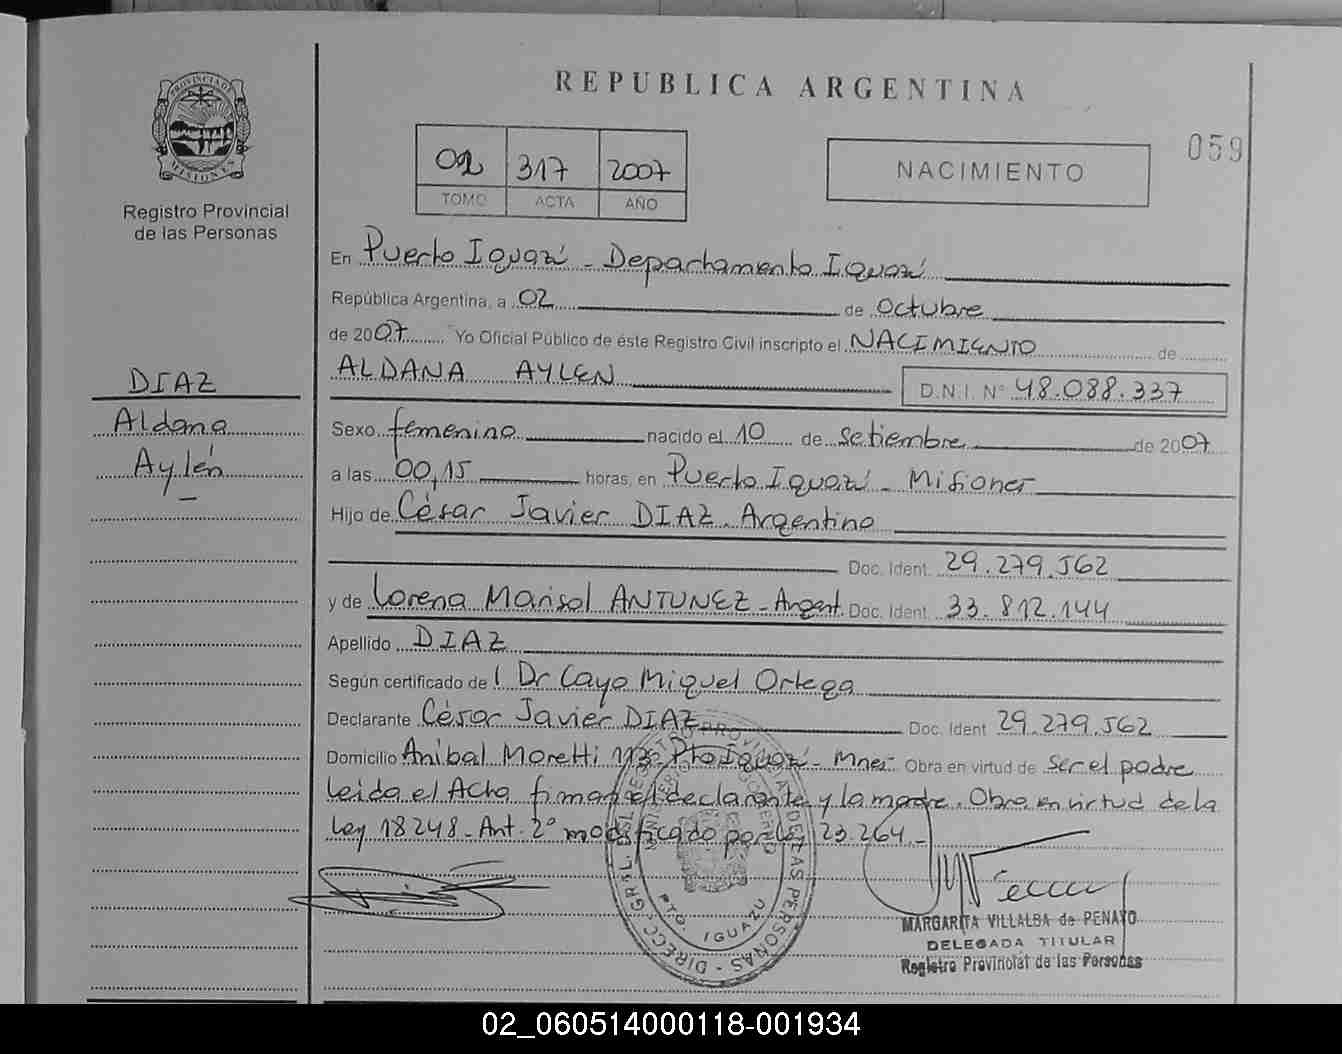 PROVINCIA DE
MISIONES
Registro Provincial
de las Personas
DIAZ
Aldana
Aylén
REPUBLICA ARGENTINA
02 317 2007
TOMO ACTA AÑO
NACIMIENTO
059
En Puerto Iguazú - Departamento Iguazú
República Argentina, a 02 de octubre
de 2007 Yo Oficial Público de éste Registro Civil inscripto el NACIMIENTO de
ALDANA AYLEN D.N.I. N° 48.088.337
Sexo femenino nacido el 10 de setiembre de 2007
a las 00,15 horas, en Puerto Iguazú - Misiones
Hijo de César Javier DIAZ - Argentino
Doc. Ident. 29.279.562
y de Lorena Marisol ANTUNEZ - Argent. Doc. Ident. 33.812.144
Apellido DIAZ
Según certificado de Dr Cayo Miguel Ortega
Declarante César Javier DIAZ Doc. Ident 29.279.562
Domicilio Anibal Moretti 113 - Pto Iguazú - Mnes Obra en virtud de ser el padre
leida el Acta firman el declarante y la madre. Obra en virtud de la
Ley 18248 - Art. 2° modificado por ley 23.264.-
PTO. IGUAZU
MARGARITA VILLALBA de PENAYO
DELEGADA TITULAR
Registro Provincial de las Personas
02_060514000118-001934